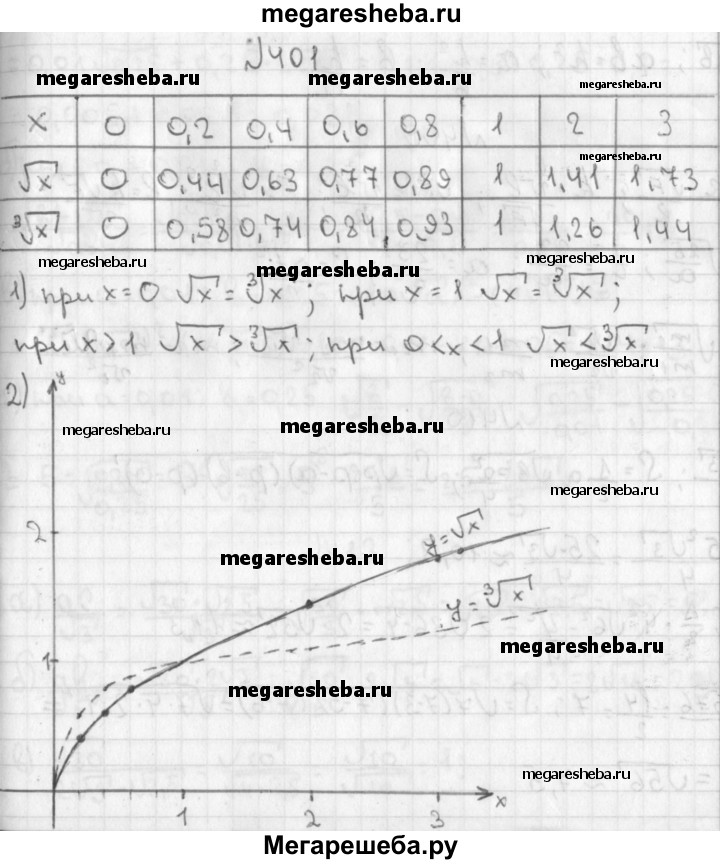 megaresheba.ru
№401
megaresheba.ru megaresheba.ru megaresheba.ru
x 0 0,2 0,4 0,6 0,8 1 2 3
megaresheba.ru
√x 0 0,44 0,63 0,77 0,89 1 1,41 1,73
∛x 0 0,58 0,74 0,84 0,93 1 1,26 1,44
megaresheba.ru megaresheba.ru megaresheba.ru
1) при x=0 √x = ∛x ; при x = 1 √x = ∛x ;
при x>1 √x > ∛x ; при 0<x<1 √x < ∛x
megaresheba.ru
2) y
megaresheba.ru megaresheba.ru
megaresheba.ru
2
y=√x
megaresheba.ru
y=∛x
megaresheba.ru
1
megaresheba.ru
megaresheba.ru
x
1 2 3
Мегарешеба.ру